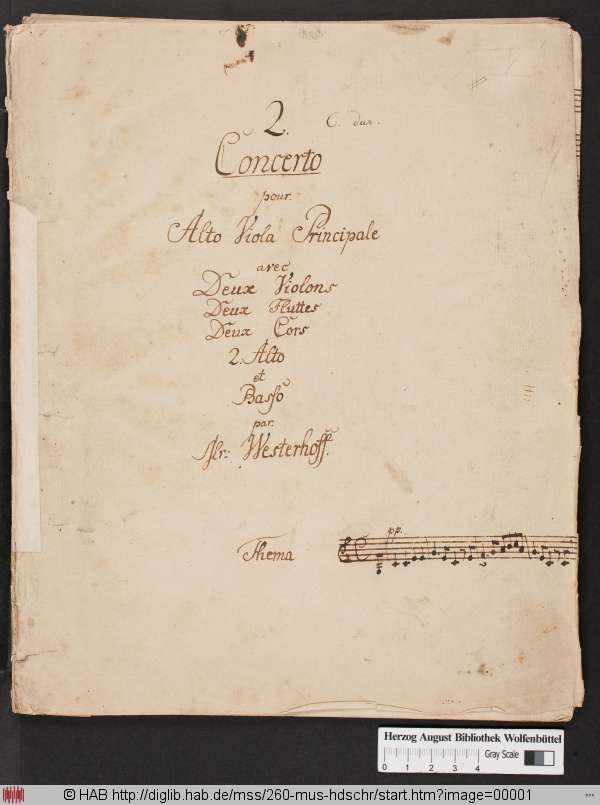 2.
C. dur.
Concerto
pour
Alto Viola Principale
avec
Deux Violons
Deux Fluttes
Deux Cors
2. Alto
et
Basso
par.
Westerhoff.
Thema
pp.
Herzog August Bibliothek Wolfenbüttel
0 1 2 3 4
Gray Scale
© HAB http://diglib.hab.de/mss/260-mus-hdschr/start.htm?image=00001